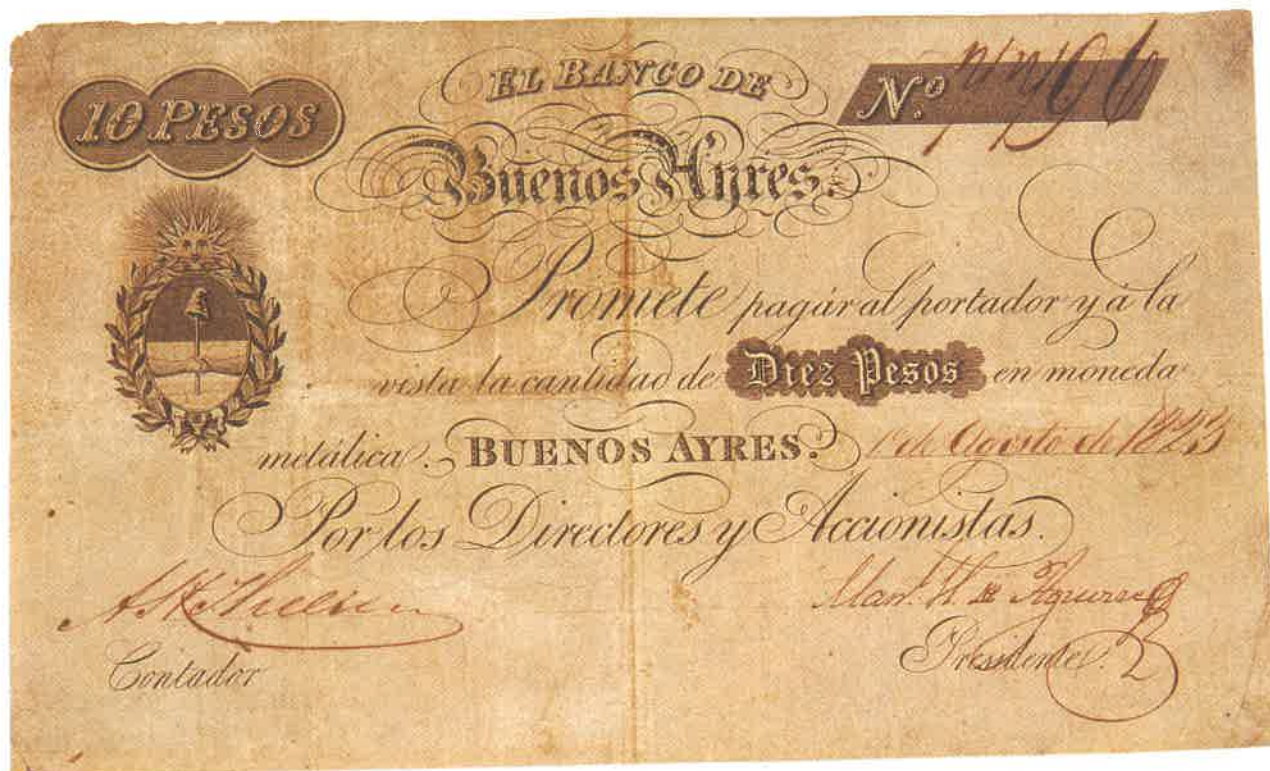 10 PESOS
EL BANCO DE
N.º
Buenos Ayres.
Promete pagár al portador y á la
vista la cantidad de Diez Pesos en moneda
metálica. BUENOS AYRES. 1º de Agosto de 1823
Por los Directores y Accionistas.
Man. H. de Aguirre
Contador
Presidente.